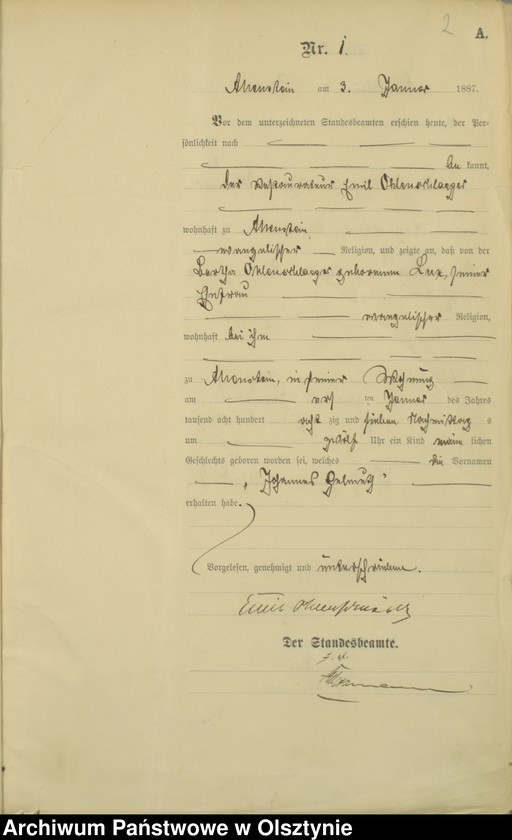 2
A.
Nr. 1.
Allenstein am 3. Januar 1887.
Vor dem unterzeichneten Standesbeamten erschien heute, der Per-
sönlichkeit nach
bekannt,
der Restaurateur Emil Ohlenschlaeger
wohnhaft zu Allenstein
evangelischer Religion, und zeigte an, daß von der
Bertha Ohlenschlaeger geborenen Lux, seiner
Ehefrau
evangelischer Religion,
wohnhaft bei ihm
zu Allenstein, in seiner Wohnung
am ersten Januar des Jahres
tausend acht hundert achtzig und sieben Nachmittags
um zwölf Uhr ein Kind männlichen
Geschlechts geboren worden sei, welches die Vornamen
„Johannes Helmuth“
erhalten habe.
Vorgelesen, genehmigt und unterschrieben.
Emil Ohlenschlaeger
Der Standesbeamte.
Archiwum Państwowe w Olsztynie